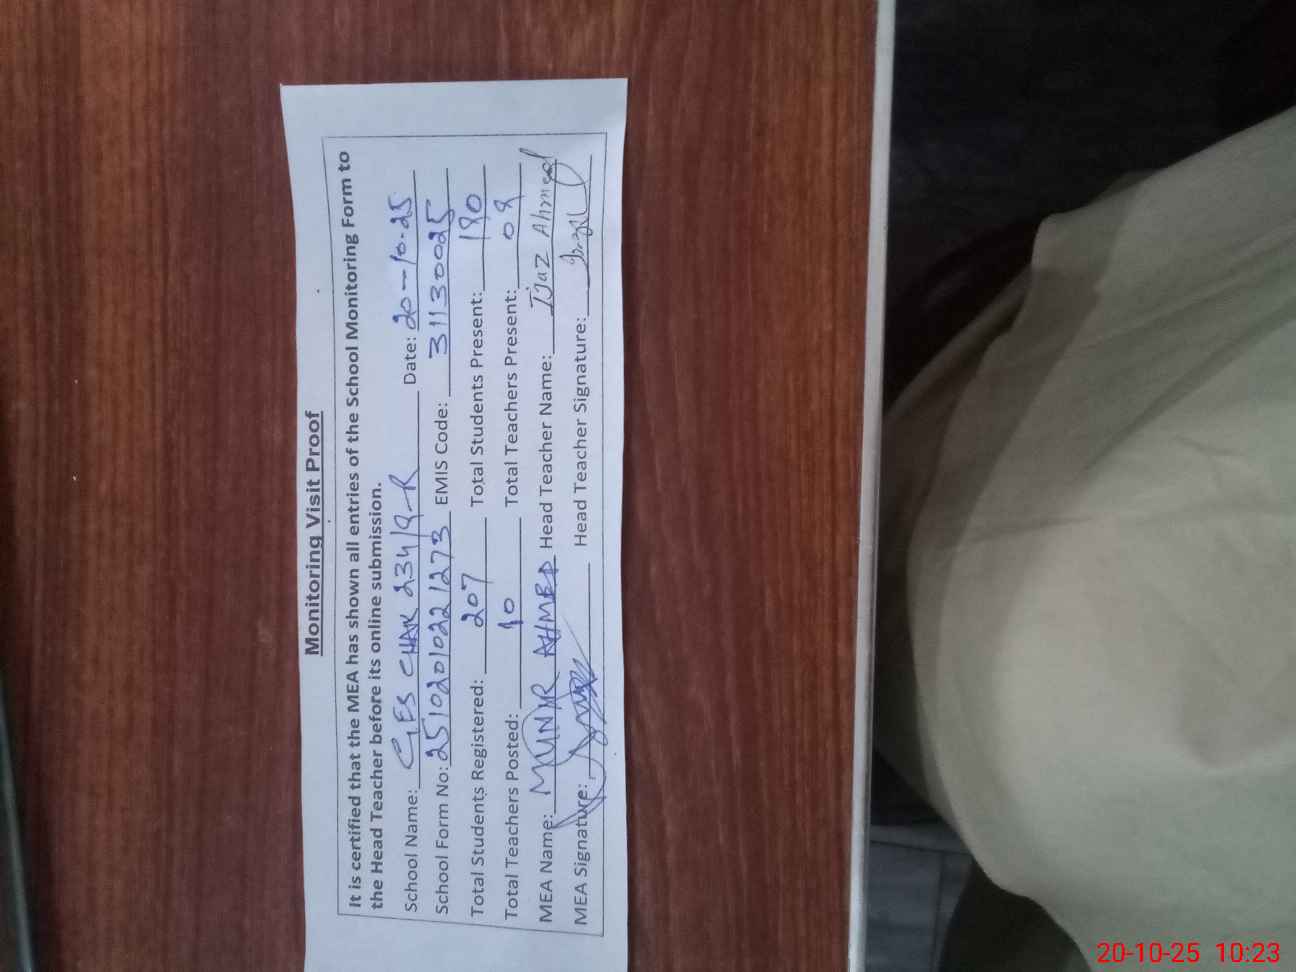 Monitoring Visit Proof
It is certified that the MEA has shown all entries of the School Monitoring Form to
the Head Teacher before its online submission.
School Name: GES CHAK 234/9-R Date: 20-10-25
School Form No: 25102010221273 EMIS Code: 31130025
Total Students Registered: 207 Total Students Present: 190
Total Teachers Posted: 10 Total Teachers Present: 09
MEA Name: MUNIR AHMED Head Teacher Name: Ijaz Ahmed
MEA Signature: Head Teacher Signature:
20-10-25 10:23